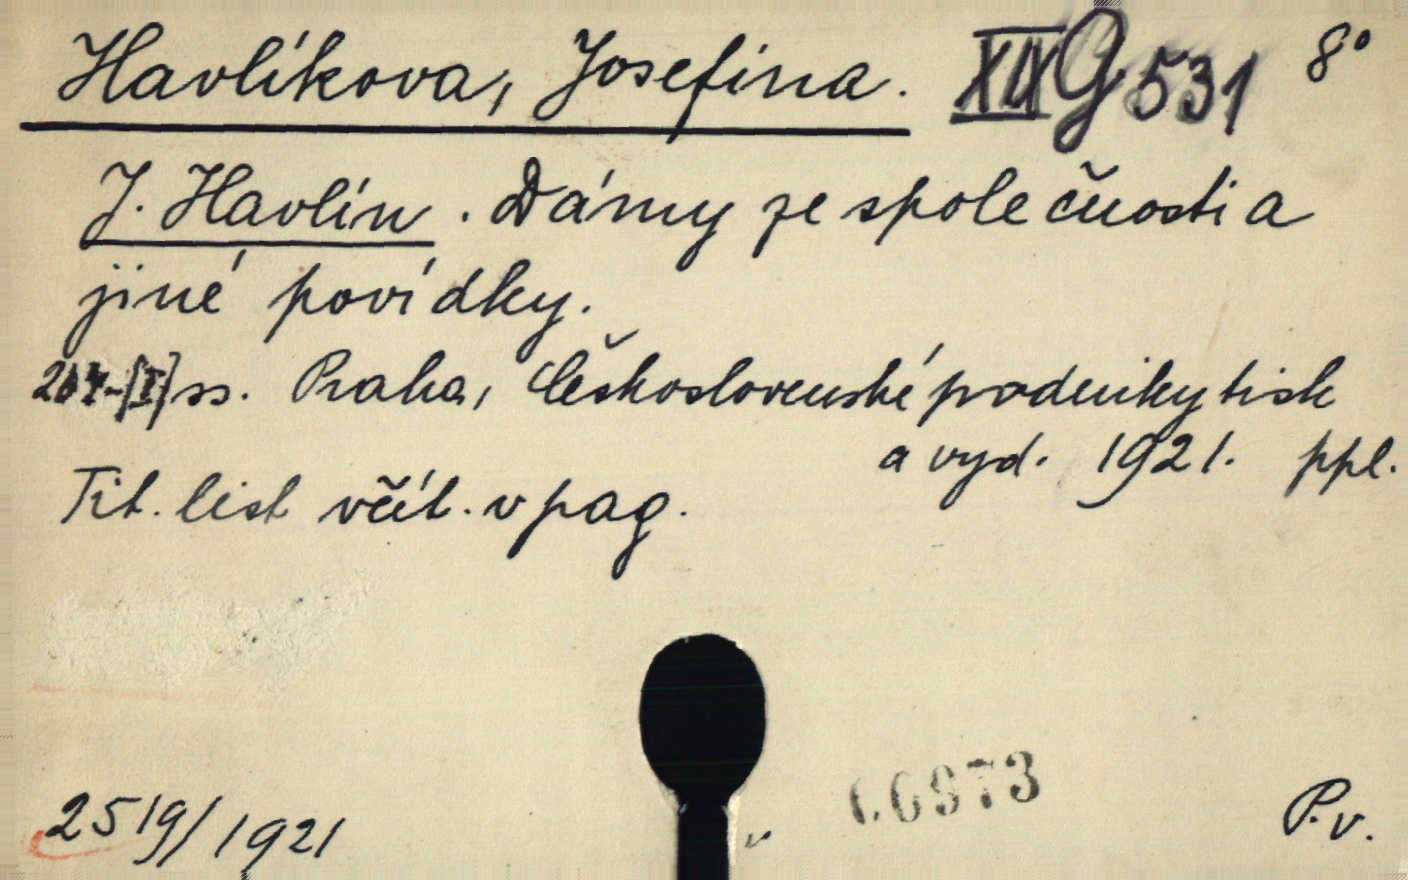 Havlíkova, Josefina. XIX G 531 8°
J. Havlín. Dámy ze společnosti a
jiné povídky.
264-[I] ss. Praha, Československé podniky tisk
a vyd. 1921. ppl.
Tit. list včít. v pag.
2519/1921
P.v.